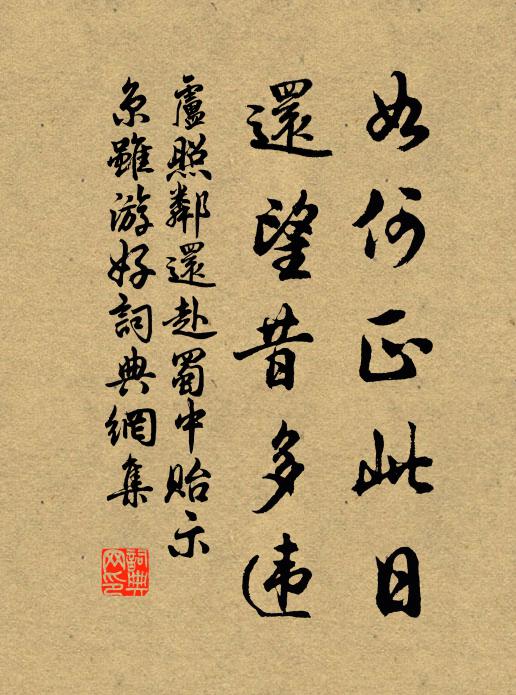 如何正此日
還望昔多违
盧照鄰還赴蜀中貽示
京雖游好詞典網集
詞典网印